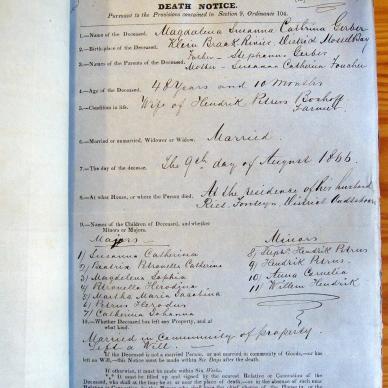 DEATH NOTICE.
Pursuant to the Provisions contained in Section 9, Ordinance 104.
1.—Name of the Deceased, Magdalena Susanna Cathrina Gerber
2.—Birth-place of the Deceased, Klein Braak Rivier District Mosselbay
3.—Names of the Parents of the Deceased, Father – Stephanus Gerber
Mother – Susanna Catherina Fouchee
4.—Age of the Deceased, 48 Years and 10 months
5.—Condition in life, Wife of Hendrik Petrus Boshoff
Farmer
6.—Married or unmarried, Widower or Widow, Married
7.—The day of the decease, The 9th day of August 1866.
8.—At what House, or where the Person died, At the residence of his husband
Riet Fonteyn District Oudtshoorn
9.—Names of the Children of Deceased, and whether
Minors or Majors.
Majors
Minors
1/ Susanna Catharina
2/ Beatrix Petronella Catherina
3/ Magdelena Sophia
4/ Petronella Herodina
5/ Martha Maria Jacobina
6/ Petrus Herodus
7/ Catherina Johanna
8/ Hendrik Petrus
9/ Hendrik Petrus
10/ Anna Cornelia
11/ Willem Hendrik
10.—Whether Deceased has left any Property, and of
what kind.
Married in Community of Property.
Left a Will.
If the Deceased is not a married Person, or not married in community of Goods,—or has
left no Will,—this Notice must be made within Six Days after the death.
If otherwise, it must be made within Six Weeks.